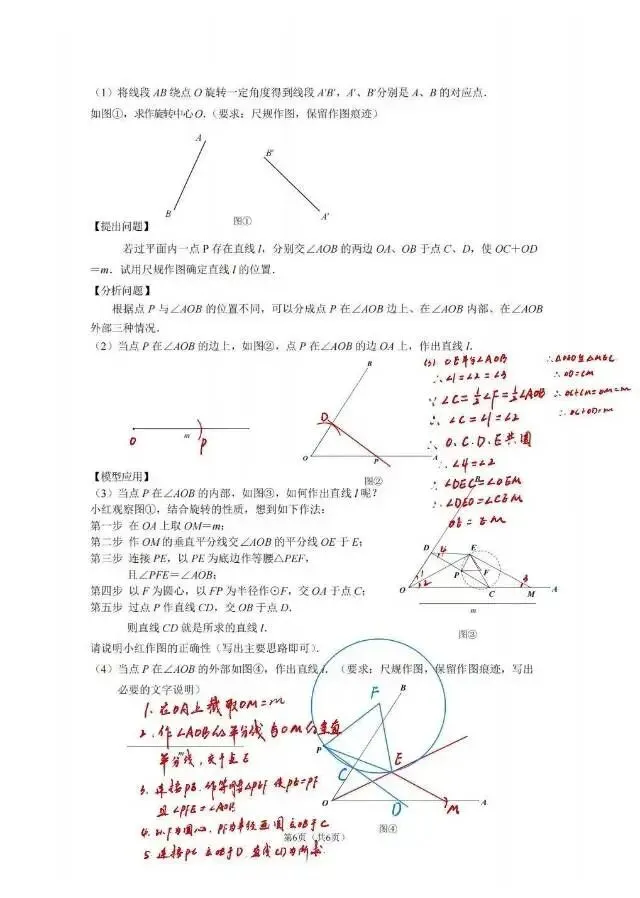 （1）将线段 AB 绕点 O 旋转一定角度得到线段 A'B'，A'、B'分别是 A、B 的对应点.
如图①，求作旋转中心 O.（要求：尺规作图，保留作图痕迹）
A
B'
B
A'
图①
【提出问题】
若过平面内一点 P 存在直线 l，分别交∠AOB 的两边 OA、OB 于点 C、D，使 OC+OD
=m．试用尺规作图确定直线 l 的位置．
【分析问题】
根据点 P 与∠AOB 的位置不同，可以分成点 P 在∠AOB 边上、在∠AOB 内部、在∠AOB
外部三种情况．
（2）当点 P 在∠AOB 的边上，如图②，点 P 在∠AOB 的边 OA 上，作出直线 l．
O
m
P
B
D
O
P
A
图②
(3). OE平分∠AOB
∴∠1=∠2=∠3
∵∠C=½∠F=½∠AOB
∴∠C=∠1=∠2
∴O.C.D.E共圆
∴∠4=∠2
∴∠DEC=∠OEM
∴∠DEO=∠CEM
OE=EM
∴OD=CM
∴OC+CM=OM=m
∴OC+OD=m
【模型应用】
（3）当点 P 在∠AOB 的内部，如图③，如何作出直线 l 呢？
小红观察图①，结合旋转的性质，想到如下作法：
第一步 在 OA 上取 OM=m；
第二步 作 OM 的垂直平分线交∠AOB 的平分线 OE 于 E；
第三步 连接 PE，以 PE 为底边作等腰△PEF，
且∠PFE=∠AOB；
第四步 以 F 为圆心，以 FP 为半径作⊙F，交 OA 于点 C；
第五步 过点 P 作直线 CD，交 OB 于点 D．
则直线 CD 就是所求的直线 l．
请说明小红作图的正确性（写出主要思路即可）．
B
D
4
E
P
F
1
2
3
O
C
M
A
m
图③
（4）当点 P 在∠AOB 的外部如图④，作出直线 l．（要求：尺规作图，保留作图痕迹，写出
必要的文字说明）
1. 在OA上截取OM=m
2. 作∠AOB的平分线与OM的垂直
平分线，交于点E
m
3. 连接PE.作等腰△PEF 使PE=PF
且∠PFE=∠AOB
4. 以F为圆心，PF为半径画圆交OB于C
5. 连接PC 交OB于D. 直线CD为所求
F
B
P
C
E
O
D
M
A
图④
第6页（共6页）